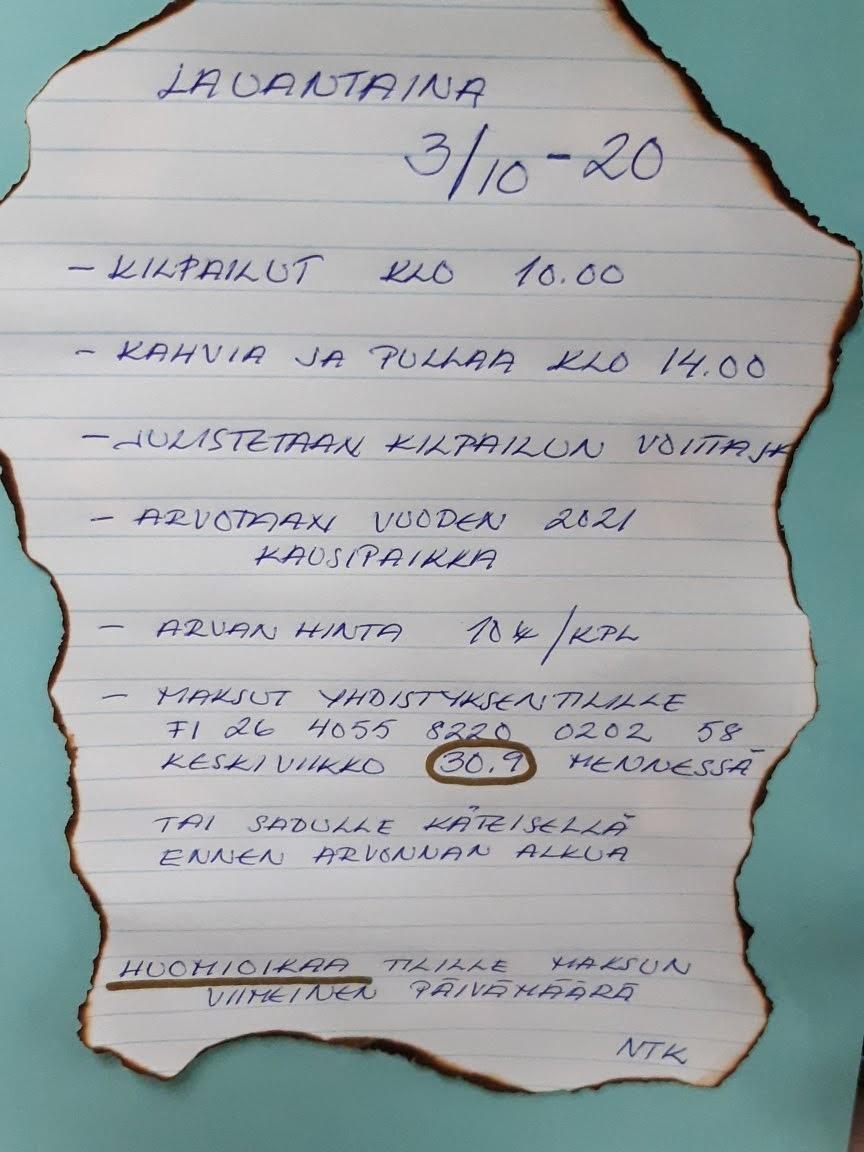 LAUANTAINA
3/10 - 20
- KILPAILUT KLO 10.00
- KAHVIA JA PULLAA KLO 14.00
- JULISTETAAN KILPAILUN VOITTAJA
- ARVOTAAN VUODEN 2021
KAUSIPAIKKA
- ARVAN HINTA 10 € /KPL
- MAKSUT YHDISTYKSEN TILILLE
FI 26 4055 8220 0202 58
KESKIVIIKKO 30.9 MENNESSÄ
TAI SADULLE KÄTEISELLÄ
ENNEN ARVONNAN ALKUA
HUOMIOIKAA TILILLE MAKSUN
VIIMEINEN PÄIVÄMÄÄRÄ
NTK